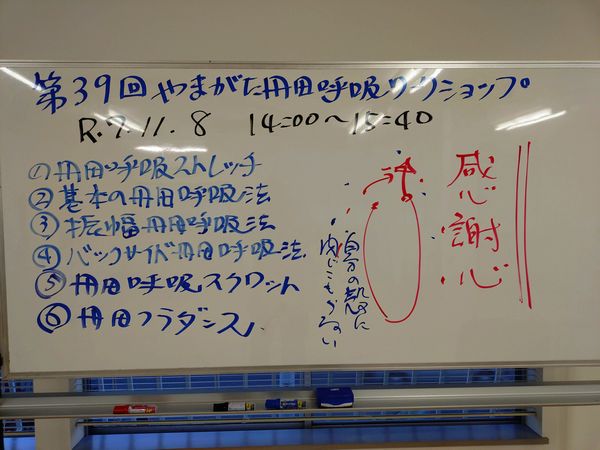 第39回やまがた丹田呼吸ワークショップ
R.7.11.8 14:00〜15:40
①丹田呼吸ストレッチ
②基本の丹田呼吸法
③振幅丹田呼吸法
④バックサイド丹田呼吸法
⑤丹田呼吸スクワット
⑥丹田フラダンス
自分の殻に
閉じこもらない
感謝心